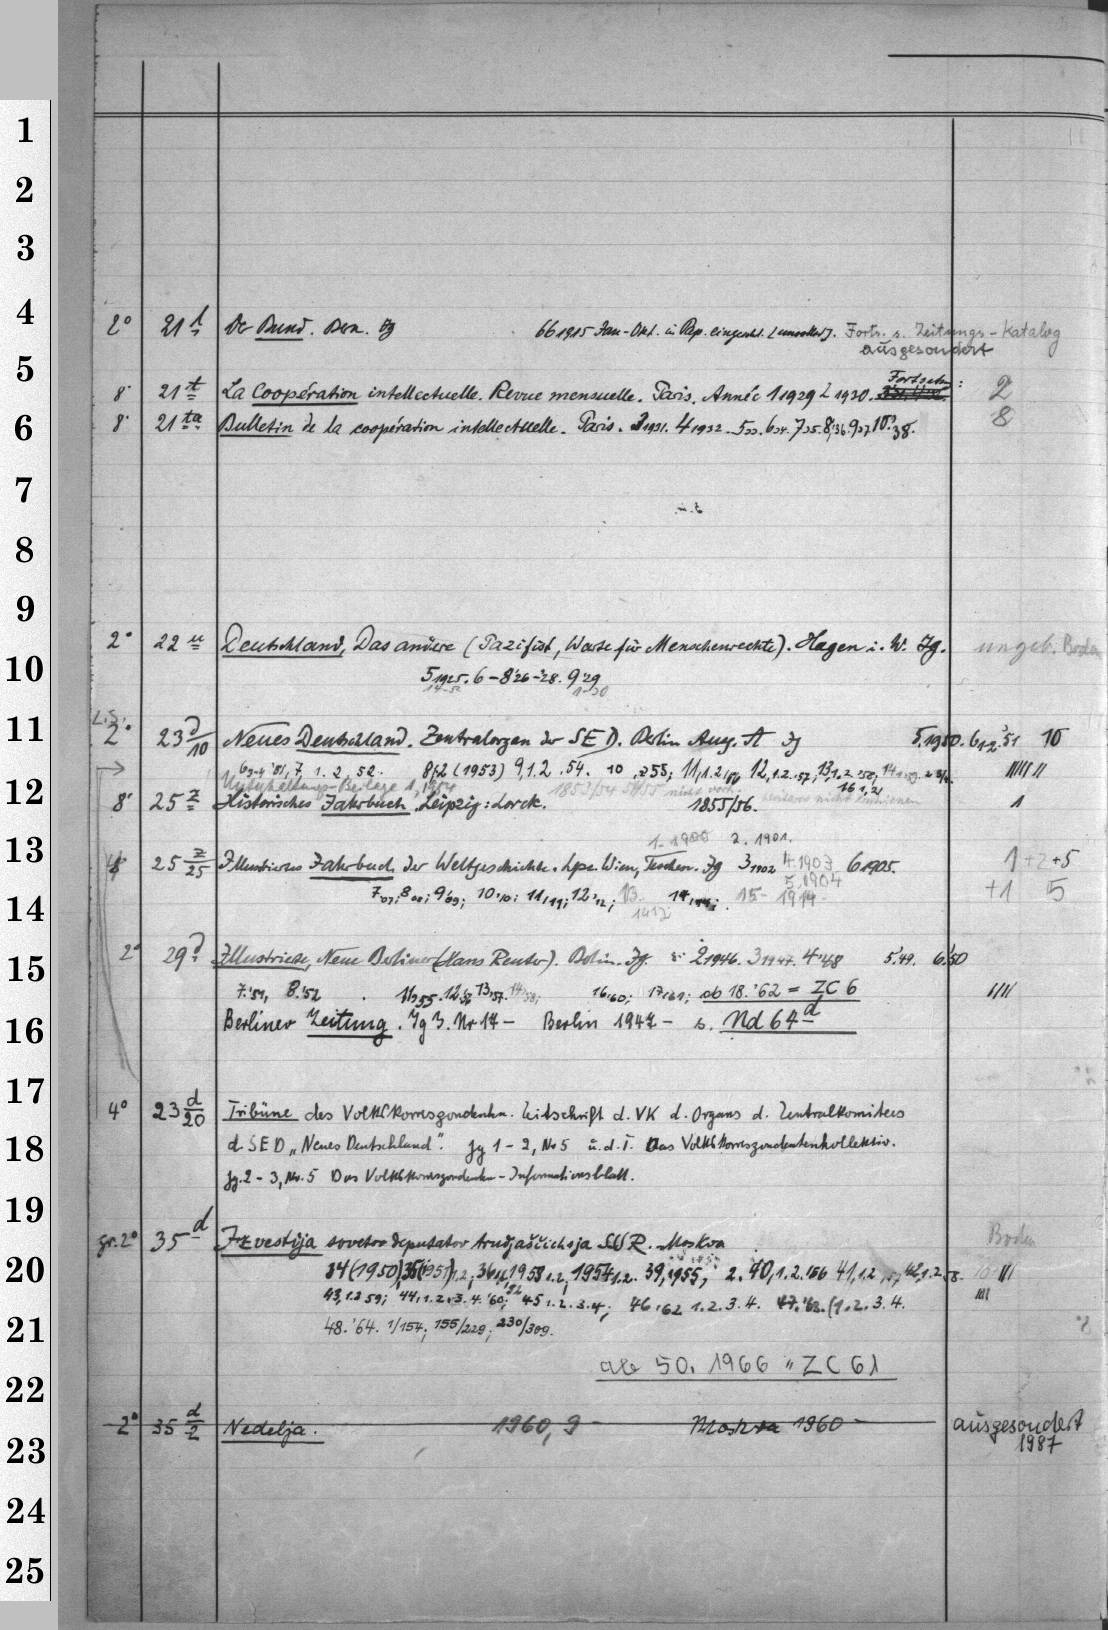 1
2
3
4
2° 21 l Der Bund. Bern. Jg 66 1915 Jan-Okt. in Pap. eingeschl. [unvollst.]. Forts. s. Zeitungs-Katalog
ausgesondert
5
8° 21 t La Coopération intellectuelle. Revue mensuelle. Paris. Année 1 1929 2 1930. Fortsetz. : 2
6
8° 21 ta Bulletin de la coopération intellectuelle. Paris. 3 1931. 4 1932. 5 33. 6 34. 7 35. 8 '36. 9 37 10. 38. 8
7
8
9
2° 22 u Deutschland, Das andere (Pazifist, Warte für Menschenrechte). Hagen i. W. Jg. ungeb. Boden
10
5 1925. 6-8 '26-'28. 9 '29
14-52 1-30
11
L.S.
2° 23 d/10 Neues Deutschland. Zentralorgan der SED. Berlin Ausg. A Jg 5. 1950. 6 1-2. '51 10
6 3-4 '51, 7 1. 2. 52. 8 1/2 (1953) 9,1.2 .54. 10 55; 11,1.2/56 12,1.2.57; 13,1.2.58;
Unterhaltungs-Beilage 1, 1954 1853/54 54/55 nicht vorh. weiteres nicht erschienen 16 1,2
12
8° 25 z Historisches Jahrbuch. Leipzig: Lorck. 1855/56. 1
1. 1900 2. 1901.
13
25 z/25 Illustriertes Jahrbuch der Weltgeschichte. Lpz. Wien, Teschen. Jg 3 1902 4. 1903 6 1905. 1+2+5
5. 1904
7 '07; 8 '08; 9 '09; 10 '10; 11/11; 12 '12; 13. 14; 15- 1914- +1 5
14
2° 29 d Illustrierte, Neue Berliner (Hans Reuter). Berlin. Jg. 2 1946. 3 1947. 4 '48 5 '49. 6 '50
15
7. '51, 8. '52 11,55. 12,56 13,57. 14,58; 16,60; 17,61; ab 18. '62 = ZC 6
16
Berliner Zeitung. Jg 3. Nr 14- Berlin 1947- s. Nd 64 d
17
4° 23 d/20 Tribüne des Volkskorrespondenten. Zeitschrift d. VK d. Organs d. Zentralkomitees
18
d. SED „Neues Deutschland". Jg 1-2, Nr 5 u. d. T. Das Volkskorrespondentenkollektiv.
Jg. 2-3, Nr. 5 Das Volkskorrespondenten-Informationsblatt.
19
gr. 2° 35 d Izvestija sovetov deputatov trudjaščichsja SSSR. Moskva Boden
20
34 (1950), 35 (1951) 1.2, 36, 1953 1.2, 1954 1.2. 39, 1955, 2. 40, 1.2. 156 41, 1.2 57, 42, 1.2. 58.
43, 1.2 59; 44, 1. 2. 3. 4. '60; 45 1. 2. 3. 4; 46 '62 1. 2. 3. 4. 47. '63. (1. 2. 3. 4.
21
48. '64. 1/154; 155/229; 230/309.
ab 50. 1966 " ZC 61
22
2° 35 d/2 Nedelja. 1960, 9 - Moskva 1960 - ausgesondert
1987
23
24
25